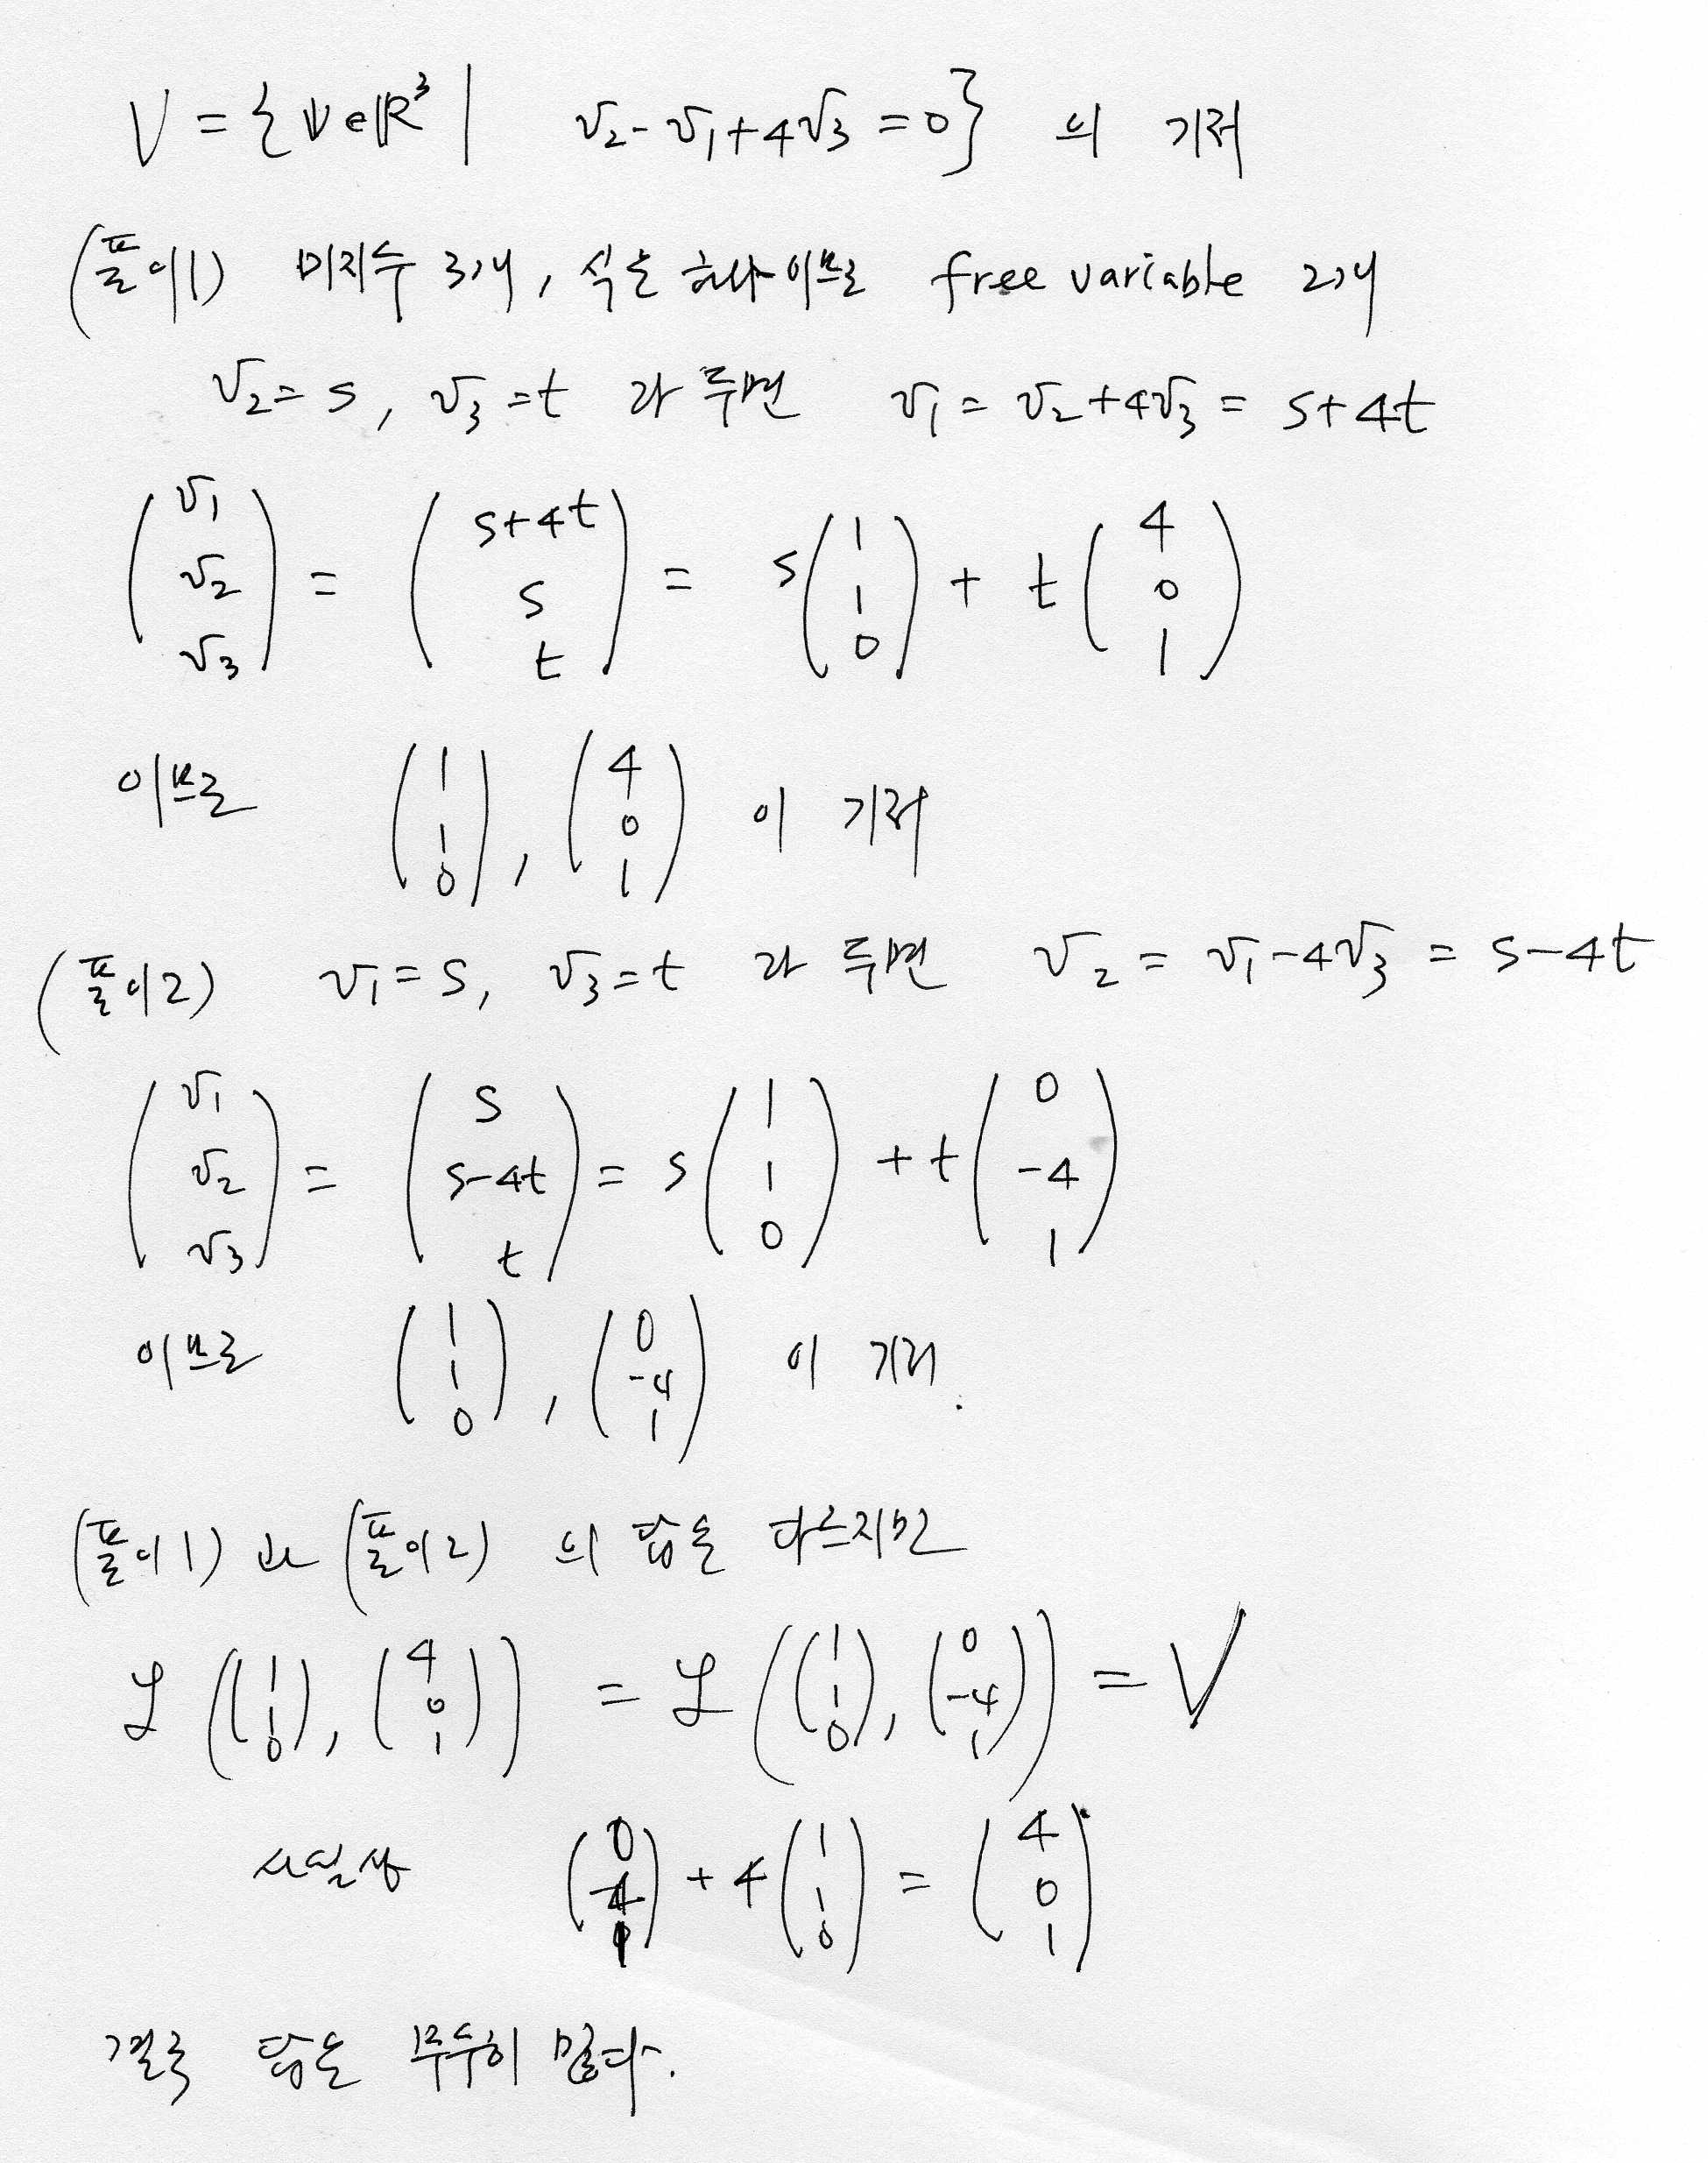 V = { v ∈ ℝ³ | v₂ - v₁ + 4v₃ = 0 } 의 기저
(풀이1) 미지수 3개, 식은 하나이므로 free variable 2개
v₂ = s, v₃ = t 라 두면 v₁ = v₂ + 4v₃ = s + 4t
(v₁ v₂ v₃) = (s+4t s t) = s (1 1 0) + t (4 0 1)
이므로 (1 1 0), (4 0 1) 이 기저
(풀이2) v₁ = s, v₃ = t 라 두면 v₂ = v₁ - 4v₃ = s - 4t
(v₁ v₂ v₃) = (s s-4t t) = s (1 1 0) + t (0 -4 1)
이므로 (1 1 0), (0 -4 1) 이 기저.
(풀이1) 과 (풀이2) 의 답은 다르지만
ℒ ((1 1 0), (4 0 1)) = ℒ ((1 1 0), (0 -4 1)) = V
사실상 (0 -4 1) + 4 (1 1 0) = (4 0 1)
결국 답은 무수히 많다.